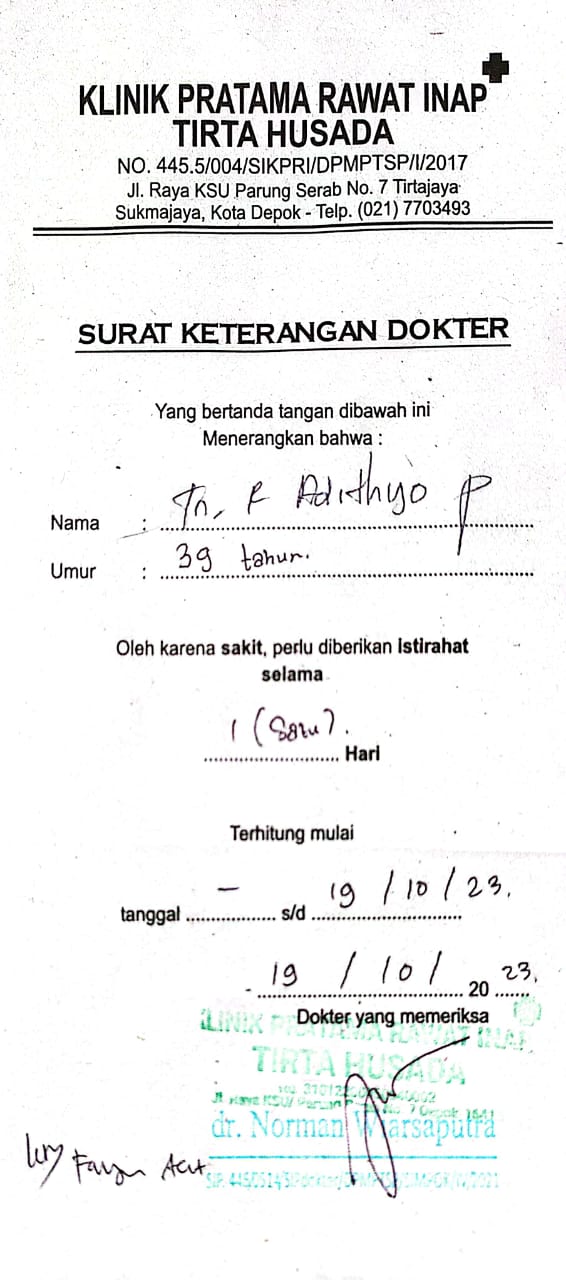 KLINIK PRATAMA RAWAT INAP
TIRTA HUSADA
NO. 445.5/004/SIKPRI/DPMPTSP/I/2017
Jl. Raya KSU Parung Serab No. 7 Tirtajaya
Sukmajaya, Kota Depok - Telp. (021) 7703493
SURAT KETERANGAN DOKTER
Yang bertanda tangan dibawah ini
Menerangkan bahwa :
Nama : Tn. R Adithyo P
Umur : 39 tahun.
Oleh karena sakit, perlu diberikan istirahat
selama
1 (Satu).
Hari
Terhitung mulai
tanggal - s/d 19/10/23.
19/10/2023.
Dokter yang memeriksa
KLINIK PRATAMA RAWAT INAP
TIRTA HUSADA
dr. Norman Wiarsaputra